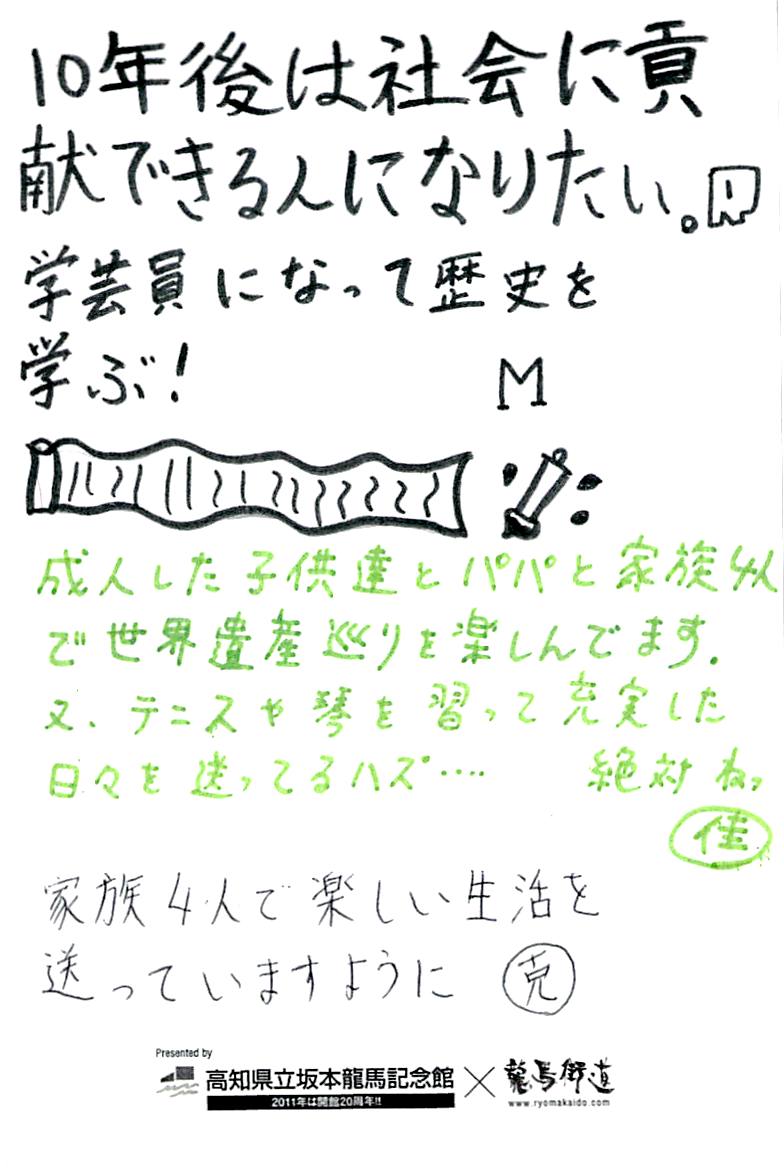 10年後は社会に貢
献できる人になりたい。
学芸員になって歴史を
学ぶ!
M
成人した子供達とパパと家族4人
で世界遺産巡りを楽しんでます.
又、テニスや琴を習って充実した
日々を送ってるハズ‥‥ 絶対ねっ
佳
家族4人で楽しい生活を
送っていますように 克
Presented by
高知県立坂本龍馬記念館×龍馬街道
2011年は開館20周年!!
www.ryomakaido.com